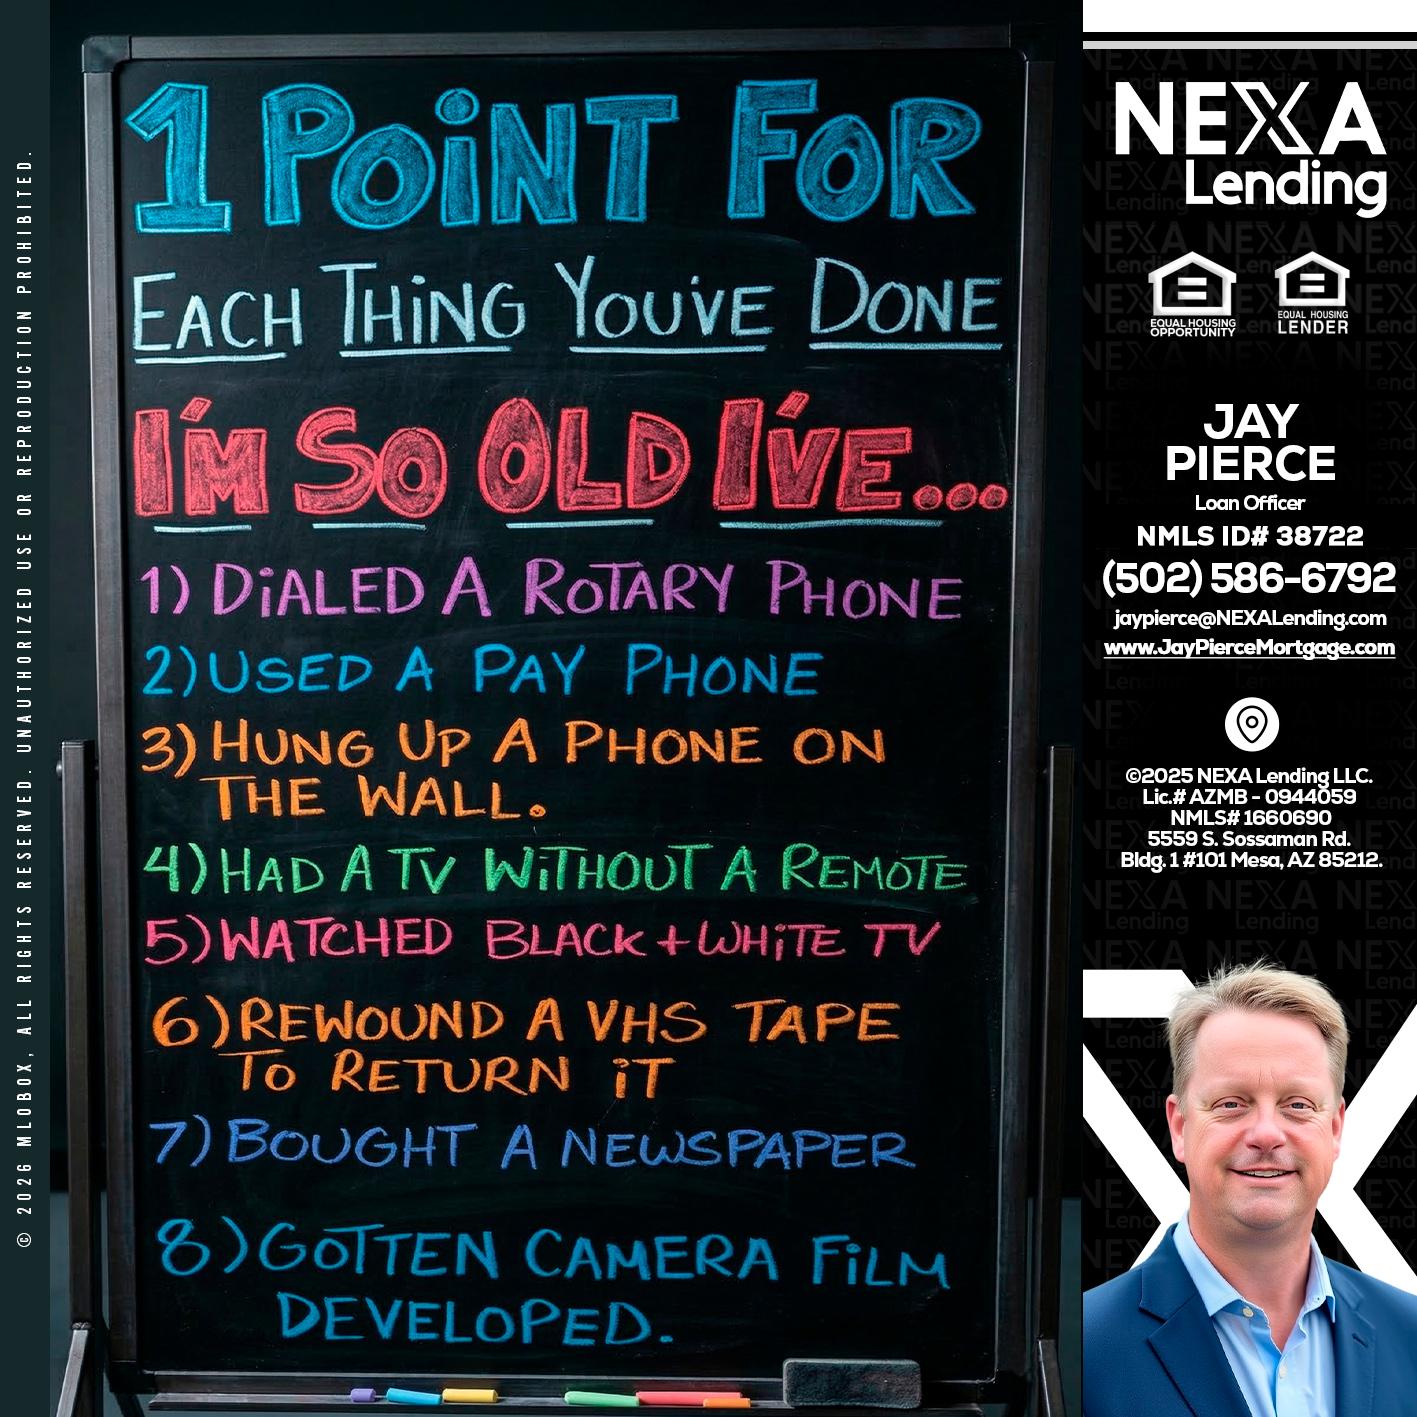 1 POINT FOR
EACH THING YOU'VE DONE
I'M SO OLD I'VE...
1) DIALED A ROTARY PHONE
2) USED A PAY PHONE
3) HUNG UP A PHONE ON
THE WALL.
4) HAD A TV WITHOUT A REMOTE
5) WATCHED BLACK + WHITE TV
6) REWOUND A VHS TAPE
TO RETURN IT
7) BOUGHT A NEWSPAPER
8) GOTTEN CAMERA FILM
DEVELOPED.
© 2026 MLOBOX, ALL RIGHTS RESERVED. UNAUTHORIZED USE OR REPRODUCTION PROHIBITED.
NEXA
Lending
EQUAL HOUSING
OPPORTUNITY
EQUAL HOUSING
LENDER
JAY
PIERCE
Loan Officer
NMLS ID# 38722
(502) 586-6792
jaypierce@NEXALending.com
www.JayPierceMortgage.com
©2025 NEXA Lending LLC.
Lic.# AZMB - 0944059
NMLS# 1660690
5559 S. Sossaman Rd.
Bldg. 1 #101 Mesa, AZ 85212.